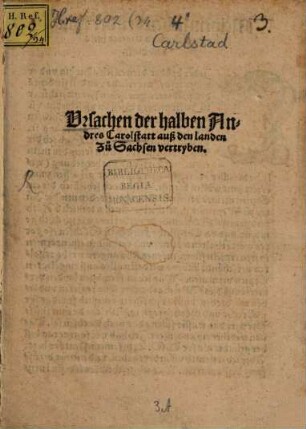 H. Ref.
803
/24
H.ref. 802 (24. 4° 3.
Carlstad
Vrsachen der halben An-
dres Carolstatt auß den landen
zů Sachsen vertryben.
BIBLIOTHECA
REGIA
MONACENSIS.
3.A